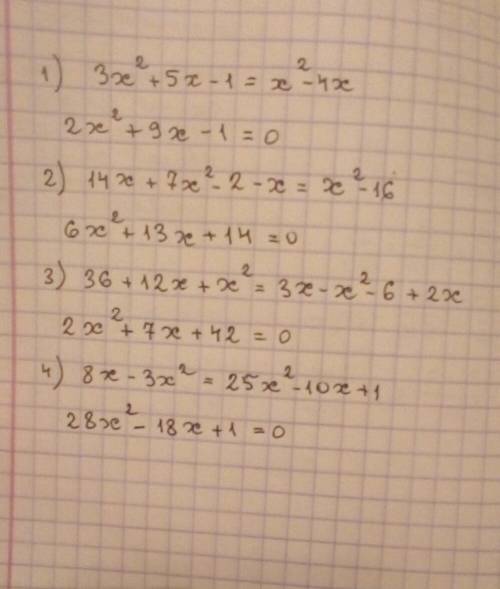 1) 3x² + 5x - 1 = x² - 4x
2x² + 9x - 1 = 0
2) 14x + 7x² - 2 - x = x² - 16
6x² + 13x + 14 = 0
3) 36 + 12x + x² = 3x - x² - 6 + 2x
2x² + 7x + 42 = 0
4) 8x - 3x² = 25x² - 10x + 1
28x² - 18x + 1 = 0